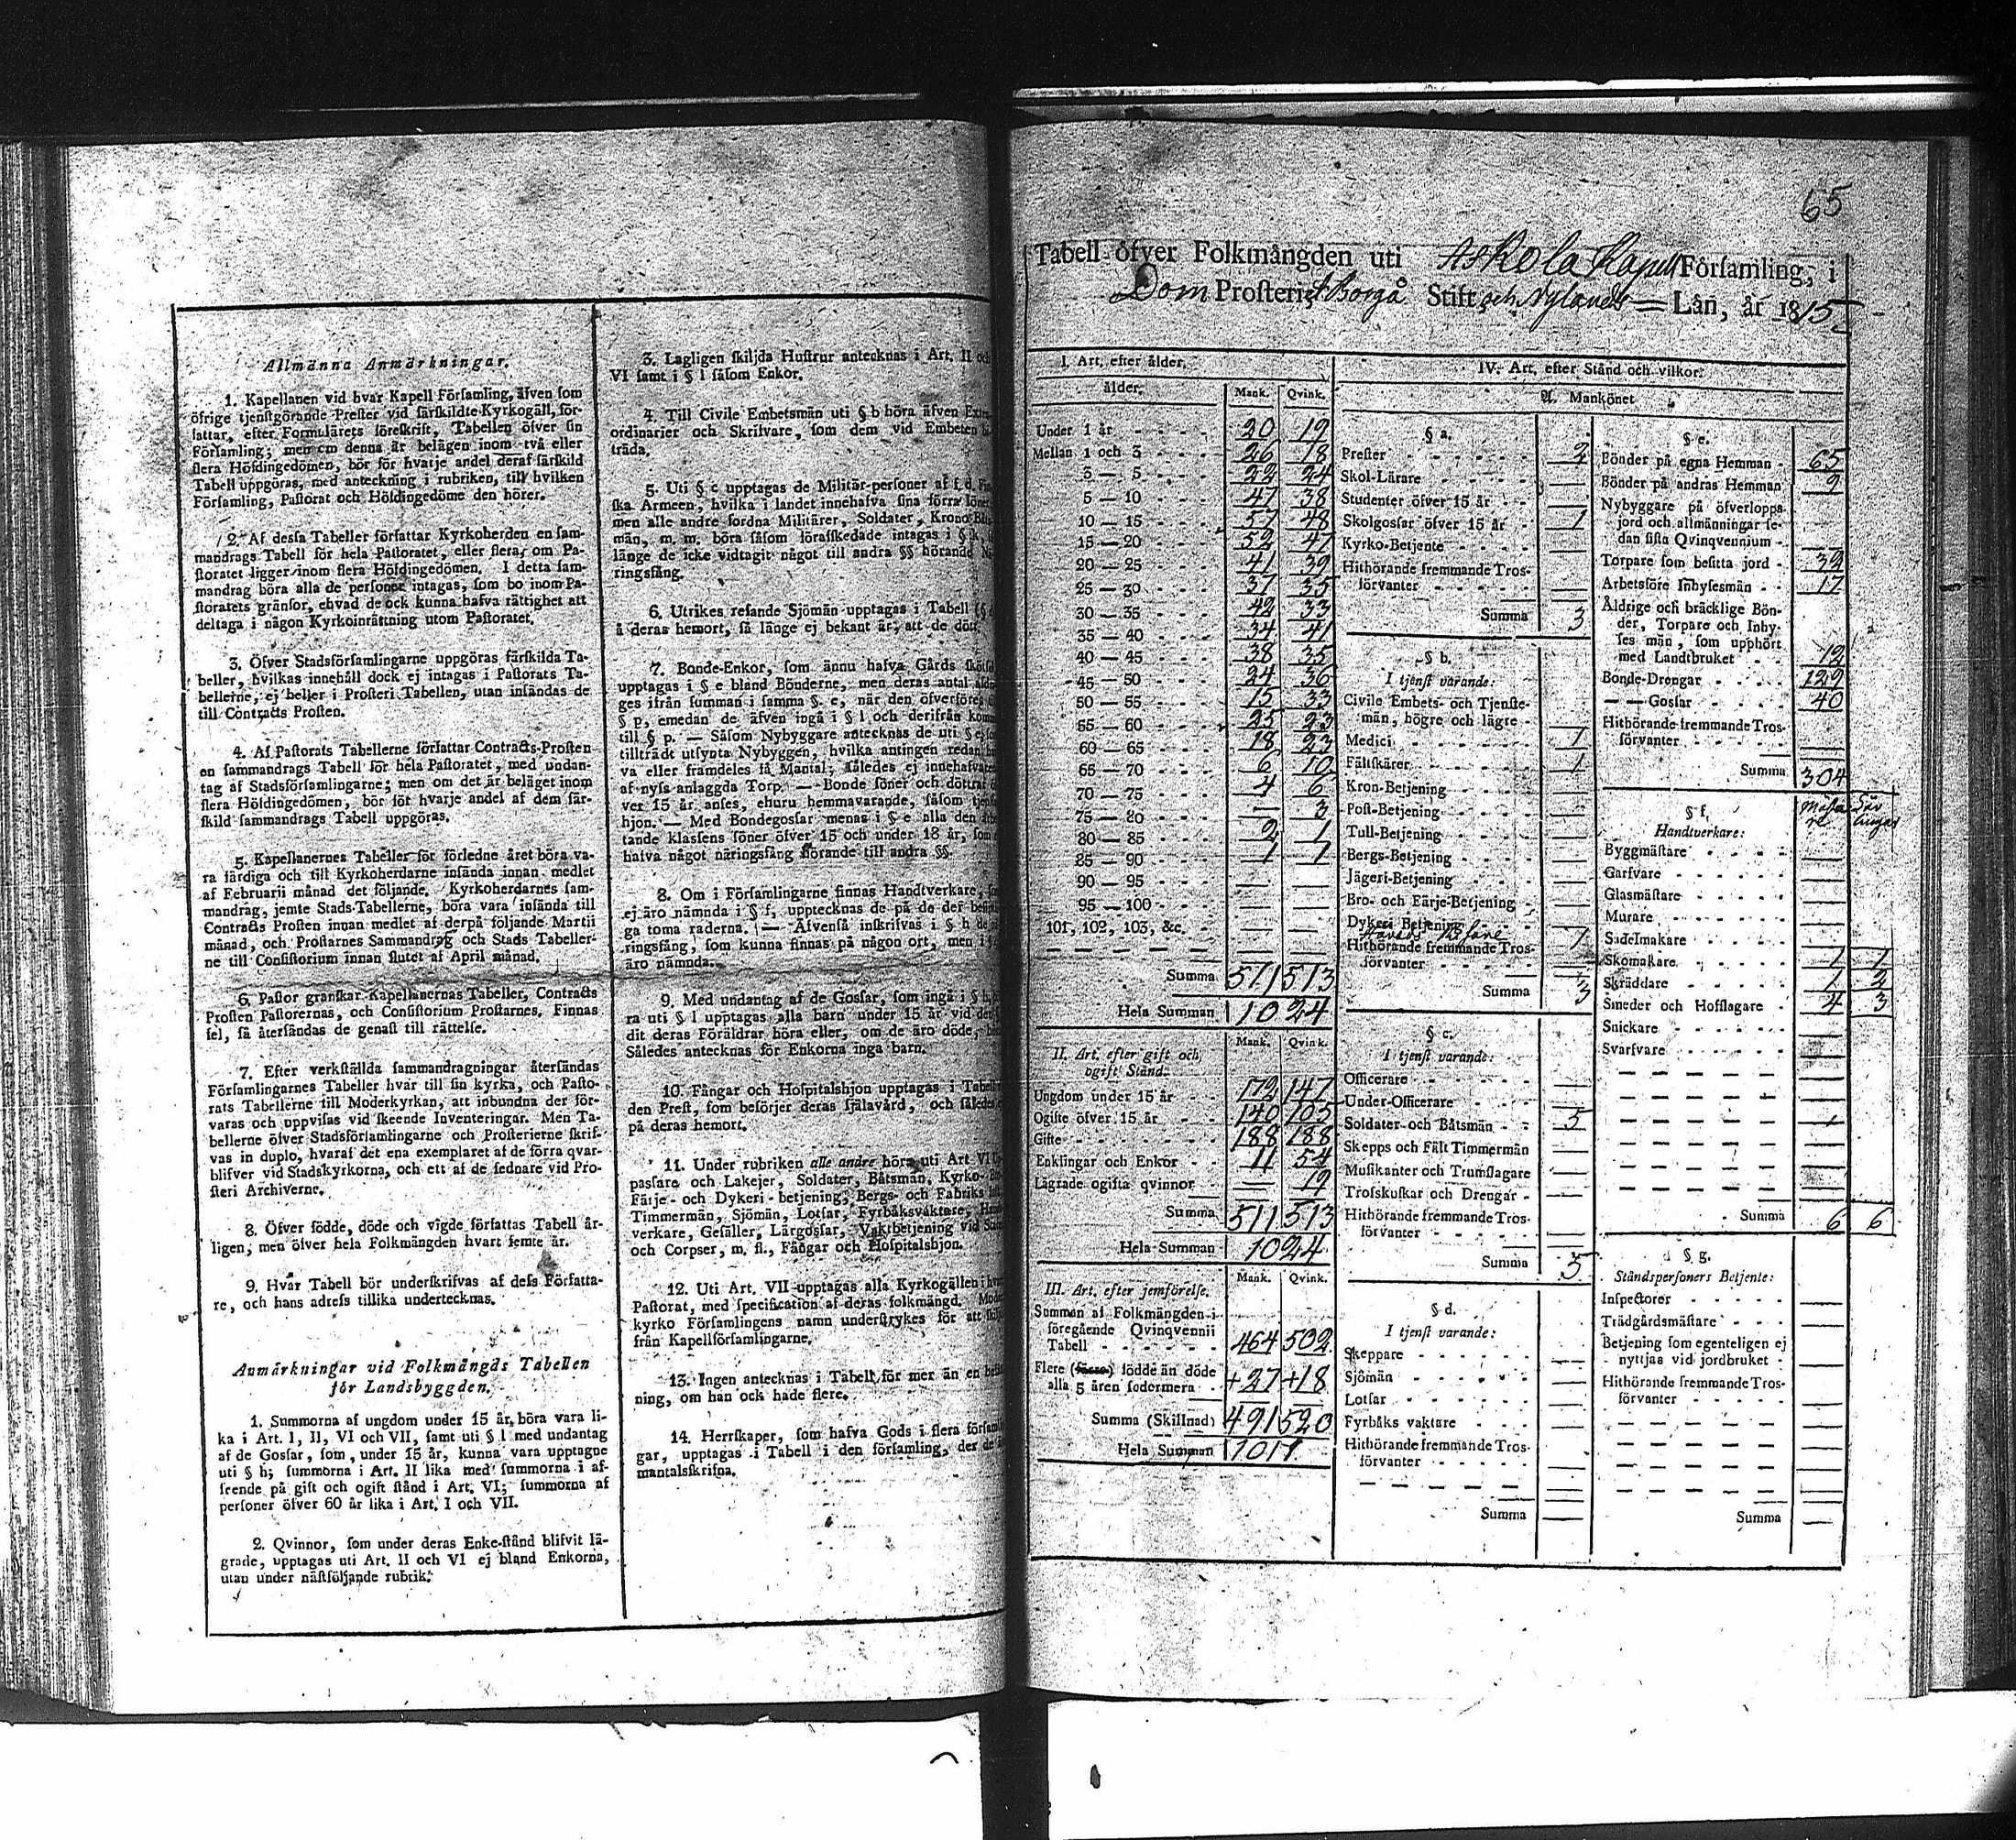 Allmänna Anmärkningar.
1. Kapellanen vid hvar Kapell Församling, äfven som
öfrige tjenstgörande Prester vid särskildte Kyrkogäll, för-
fattar, efter Formulärets föreskrift, Tabellen öfver sin
Församling; men om denna är belägen inom två eller
flera Höfdingedömen, bör för hvarje andel deraf särskild
Tabell uppgöras, med anteckning i rubriken, till hvilken
Församling, Pastorat och Höfdingedöme den hörer.
2. Af dessa Tabeller författar Kyrkoherden en sam-
mandrags Tabell för hela Pastoratet, eller flera, om Pa-
storatet ligger inom flera Höfdingedömen. I detta sam-
mandrag böra alla de personer intagas, som bo inom Pa-
storatets gränsor, ehvad de ock kunna hafva rättighet att
deltaga i någon Kyrkoinrättning utom Pastoratet.
3. Öfver Stadsförsamlingarne uppgöras särskilda Ta-
beller, hvilkas innehåll dock ej intagas i Pastorats Ta-
bellerne, ej heller i Prosteri Tabellen, utan insändas de
till Contracts Prosten.
4. Af Pastorats Tabellerne författar Contracts-Prosten
en sammandrags Tabell för hela Pastoratet, med undan-
tag af Stadsförsamlingarne; men om det är beläget inom
flera Höfdingedömen, bör för hvarje andel af dem sär-
skild sammandrags Tabell uppgöras.
5. Kapellanernes Tabeller för förledne året böra va-
ra färdiga och till Kyrkoherdarne insända innan medlet
af Februarii månad det följande. Kyrkoherdarnes sam-
mandrag, jemte Stads-Tabellerne, böra vara insända till
Contracts Prosten innan medlet af derpå följande Martii
månad, och Prostarnes Sammandrag och Stads Tabeller-
ne till Consistorium innan slutet af April månad.
6. Pastor granskar Kapellanernas Tabeller, Contracts
Prosten Pastorernas, och Consistorium Prostarnes. Finnas
fel, så återsändas de genast till rättelse.
7. Efter verkställda sammandragningar återsändas
Församlingarnes Tabeller hvar till sin kyrka, och Pasto-
rats Tabellerne till Moderkyrkan, att inbundna der för-
varas och uppvisas vid skeende Inventeringar. Men Ta-
bellerne öfver Stadsförsamlingarne och Prosterierne skrif-
vas in duplo, hvaraf det ena exemplaret af de förra qvar-
blifver vid Stadskyrkorna, och ett af de sednare vid Pro-
steri Archiverne.
8. Öfver födde, döde och vigde författas Tabell år-
ligen, men öfver hela Folkmängden hvart femte år.
9. Hvar Tabell bör underskrifvas af dess Författa-
re, och hans adress tillika undertecknas.
Anmärkningar vid Folkmängds Tabellen
för Landsbyggden.
1. Summorna af ungdom under 15 år, böra vara li-
ka i Art. I, II, VI och VII, samt uti § l med undantag
af de Gossar, som, under 15 år, kunna vara upptagne
uti § h; summorna i Art. II lika med summorna i af-
seende på gift och ogift stånd i Art. VI; summorna af
personer öfver 60 år lika i Art. I och VII.
2. Qvinnor, som under deras Enke-stånd blifvit lä-
grade, upptagas uti Art. II och VI ej bland Enkorna,
utan under nästföljande rubrik.
3. Lagligen skiljda Hustrur antecknas i Art. II och
VI samt i § l såsom Enkor.
4. Till Civile Embetsmän uti § b höra äfven Extra-
ordinarier och Skrifvare, som dem vid Embeten bi-
träda.
5. Uti § c upptagas de Militär-personer af f. d. Fin-
ska Armeen, hvilka i landet innehafva sina förra löner
men alle andre fordna Militärer, Soldater, Krono Båts-
män, m. m. böra såsom förafskedade intagas i § k,
länge de icke vidtagit något till andra §§ hörande Nä-
ringsfång.
6. Utrikes resande Sjömän upptagas i Tabell (§
å deras hemort, så länge ej bekant är, att de dött.
7. Bonde-Enkor, som ännu hafva Gårds skötsel
upptagas i § e bland Bönderne, men deras antal afdra-
ges ifrån summan i samma § e, när den öfverföres
§ p, emedan de äfven ingå i § l och derifrån komma
till § p. — Såsom Nybyggare antecknas de uti § e
tillträdt utsynta Nybyggen, hvilka antingen redan ha-
va eller framdeles få Mantal; således ej innehafvare
af nyss anlaggda Torp. — Bonde söner och döttrar ö-
ver 15 år anses, ehuru hemmavarande, såsom tjenst-
hjon. — Med Bondegossar menas i § e alla den
tande klassens söner öfver 15 och under 18 år, som e
hafva något näringsfång hörande till andra §§.
8. Om i Församlingarne finnas Handtverkare,
ej äro nämnda i § f, upptecknas de på de der befintli-
ga toma raderna. — Äfvenså inskrifvas i § h de nä-
ringsfång, som kunna finnas på någon ort, men i §
äro nämnda.
9. Med undantag af de Gossar, som ingå i § h,
ra uti § l upptagas alla barn under 15 år vid det
dit deras Föräldrar höra eller, om de äro döde,
Således antecknas för Enkorna inga barn.
10. Fångar och Hospitalshjon upptagas i Tabell
den Prest, som besörjer deras själavård, och således
på deras hemort.
11. Under rubriken alle andre höra uti Art VI
passare och Lakejer, Soldater, Båtsmän, Kyrko-
Färje- och Dykeri-betjening, Bergs- och Fabriks
Timmermän, Sjömän, Lotsar, Fyrbåksvaktare, Handt-
verkare, Gesäller, Lärgossar, Vaktbetjening vid
och Corpser, m. fl., Fångar och Hospitalshjon.
12. Uti Art. VII upptagas alla Kyrkogällen i hvart
Pastorat, med specification af deras folkmängd. Moder-
kyrko Församlingens namn understrykes för att
från Kapellförsamlingarne.
13. Ingen antecknas i Tabell för mer än en
ning, om han ock hade flere.
14. Herrskaper, som hafva Gods i flera försam-
gar, upptagas i Tabell i den församling, der de
mantalsskrifna.
65
Tabell öfver Folkmängden uti Askola Kapell Församling, i
Dom Prosteriet Borgå Stift och Nylands Län, år 1815
I. Art. efter ålder.
ålder. Mank. Qvink.
Under 1 år 20 19
Mellan 1 och 3 26 18
3 — 5 22 24
5 — 10 47 38
10 — 15 57 48
15 — 20 52 47
20 — 25 41 39
25 — 30 37 35
30 — 35 42 33
35 — 40 34 41
40 — 45 38 35
45 — 50 24 36
50 — 55 15 33
55 — 60 25 23
60 — 65 18 23
65 — 70 6 10
70 — 75 4 6
75 — 80 — 3
80 — 85 2 1
85 — 90 1 1
90 — 95 — —
95 — 100 — —
101, 102, 103, &c. — —
Summa 511 513
Hela Summan 1024
II. Art. efter gift och
ogift Stånd. Mank. Qvink.
Ungdom under 15 år 172 147
Ogifte öfver 15 år 140 105
Gifte 188 188
Enklingar och Enkor 11 54
Lägrade ogifta qvinnor — 19
Summa 511 513
Hela Summan 1024
III. Art. efter jemförelse. Mank. Qvink.
Summan af Folkmängden i
föregående Qvinqvennii
Tabell 464 502
Flere (färre) födde än döde
alla 5 åren sodermera +27 +18
Summa (Skillnad) 491 520
Hela Summan 1011
IV. Art. efter Stånd och vilkor.
A. Mankönet
§ a.
Prester 2
Skol-Lärare —
Studenter öfver 15 år —
Skolgossar öfver 15 år 1
Kyrko-Betjente —
Hithörande fremmande Tros-
förvanter —
Summa 3
§ b.
I tjenst varande:
Civile Embets- och Tjenste-
män, högre och lägre —
Medici 1
Fältskärer 1
Kron-Betjening —
Post-Betjening —
Tull-Betjening —
Bergs-Betjening —
Jägeri-Betjening —
Bro- och Färje-Betjening —
Dykeri Betjening
1
Hithörande fremmande Tros-
förvanter —
Summa 3
§ c.
I tjenst varande:
Officerare —
Under-Officerare —
Soldater och Båtsmän 5
Skepps och Fält Timmermän —
Musikanter och Trumslagare —
Trosskuskar och Drengar —
Hithörande fremmande Tros-
förvanter —
Summa 5
§ d.
I tjenst varande:
Skeppare —
Sjömän —
Lotsar —
Fyrbåks vaktare —
Hithörande fremmande Tros-
förvanter —
Summa —
§ e.
Bönder på egna Hemman 65
Bönder på andras Hemman 9
Nybyggare på öfverlopps-
jord och allmänningar se-
dan sista Qvinqvennium —
Torpare som besitta jord 32
Arbetsföre Inhysesmän 17
Åldrige och bräcklige Bön-
der, Torpare och Inhy-
ses män, som upphört
med Landtbruket 12
Bonde-Drengar 129
— — Gossar 40
Hithörande fremmande Tros-
förvanter —
Summa 304
§ f.
Handtverkare: Mästare
Byggmästare —
Garfvare —
Glasmästare —
Murare —
Sadelmakare —
Skomakare 1 1
Skräddare 1 2
Smeder och Hofslagare 4 3
Snickare —
Svarfvare —
Summa 6 6
§ g.
Ståndspersoners Betjente:
Inspectorer —
Trädgårdsmästare —
Betjening som egenteligen ej
nyttjas vid jordbruket —
Hithörande fremmande Tros-
förvanter —
Summa —